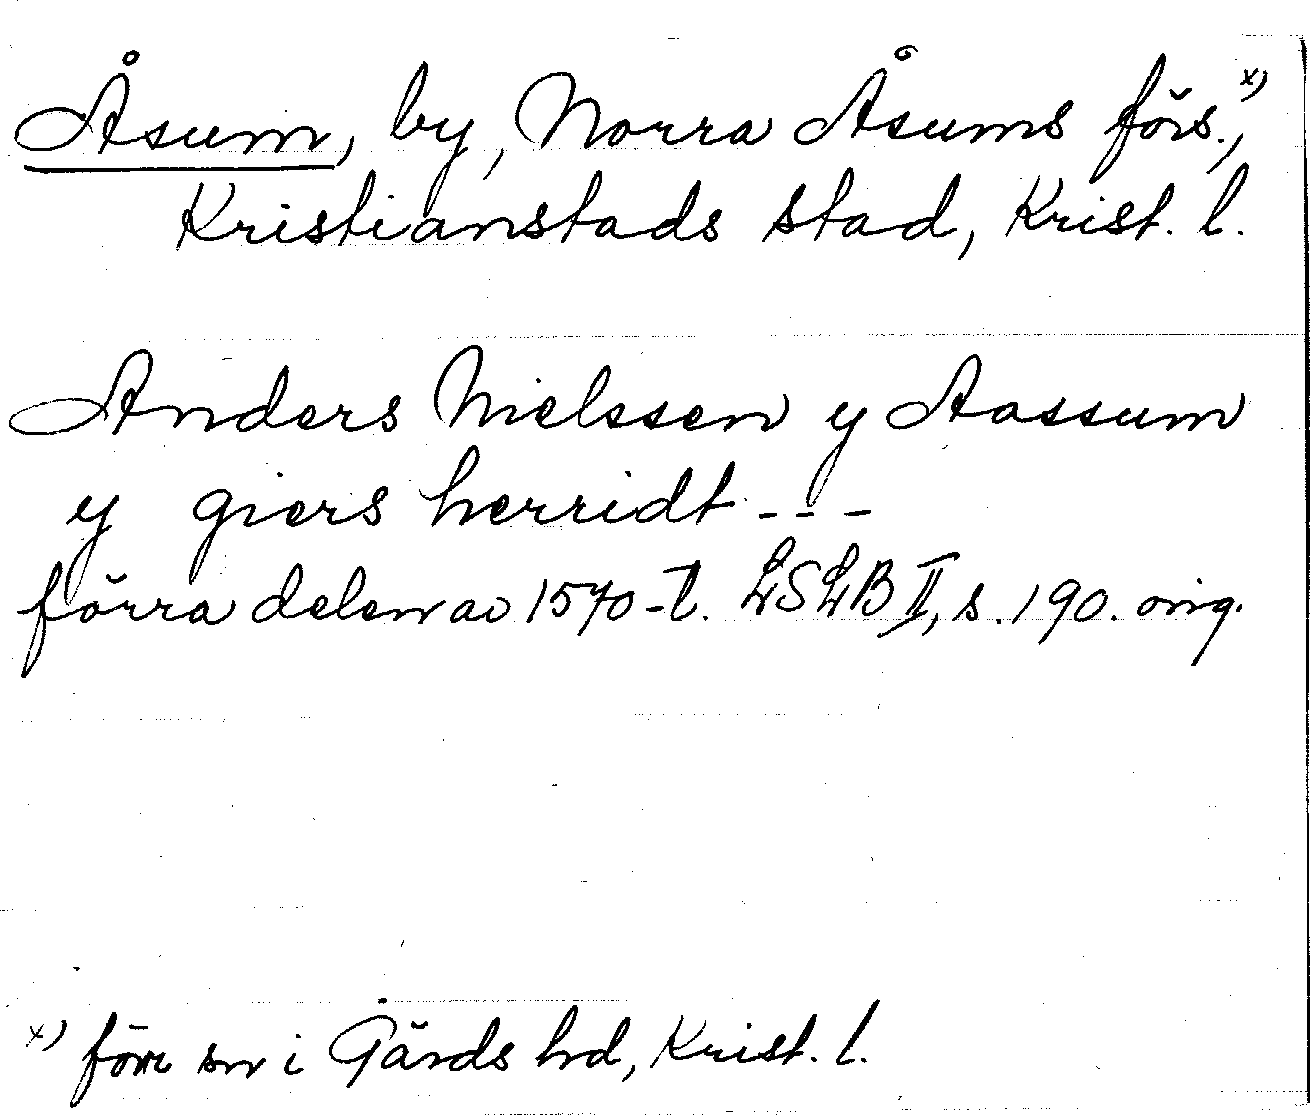 Åsum, by, Norra Åsums förs.,x)
Kristianstads stad, Krist. l.
Anders Nielssen y Aassum
y giers herridt - - -
förra delen av 1570-t. LSLB II, s. 190. orig.
x) förr sn i Gärds hd, Krist. l.